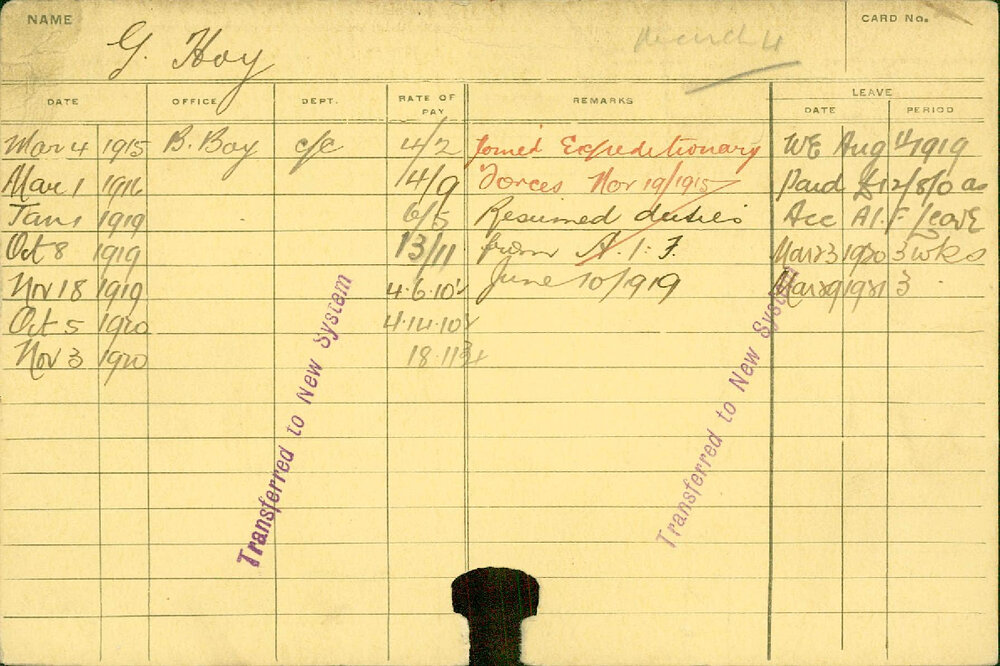 NAME
G. Hoy
March 4
CARD No.
DATE OFFICE DEPT. RATE OF PAY REMARKS LEAVE DATE PERIOD
Mar 4 1915 B. Boy c/c 4/2 Joined Expeditionary WE Aug 4/1919
Mar 1 1916 4/9 Forces Nov 19/1915 Paid £12/8/0 as
Jan 1 1919 6/5 Resumed duties Acc A.I.F leave
Oct 8 1919 13/11 from A.I.F. Mar 23 1920 3 wks
Nov 18 1919 4.6.10½ June 10/1919 Mar 29 1921 3
Oct 5 1920 4.14.10½
Nov 3 1920 18.11¾
Transferred to New System
Transferred to New System